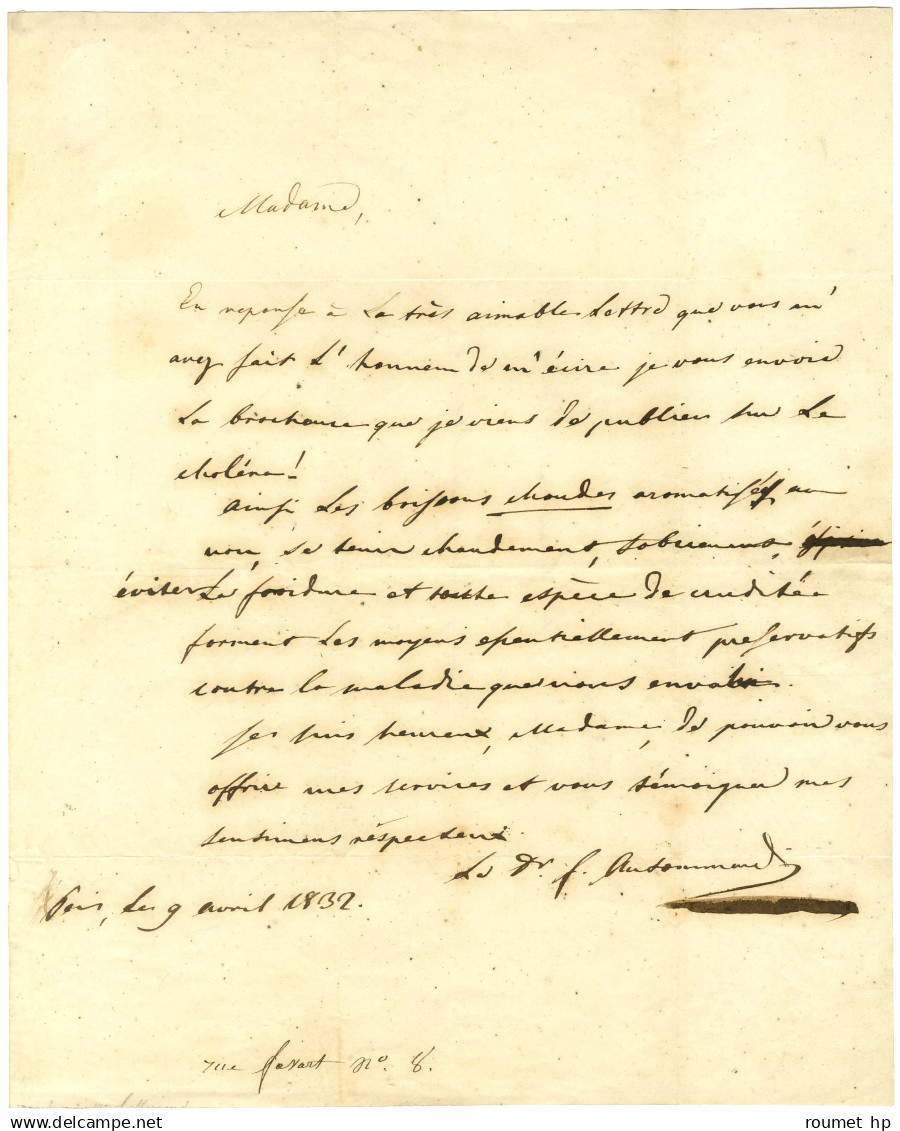 Madame,
En reponse à La très aimable Lettre que vous m'
avez fait L'honneur de m'écrire je vous envoie
La brochure que je viens de publier sur Le
choléra!
ainsi Les boissons chaudes aromatisées ou
non, se tenir chaudement, sobrement,
éviter La froidure et toute espèce de cruditée
forment Les moyens essentiellement preservatifs
contre la maladie que nous
je suis heureux, Madame, de pouvoir vous
offrir mes services et vous témoigner mes
sentimens réspecteux.
Le Dr. f. Antommarchi
Paris, Le 9 avril 1832.
rue favart No. 8.
roumet hp